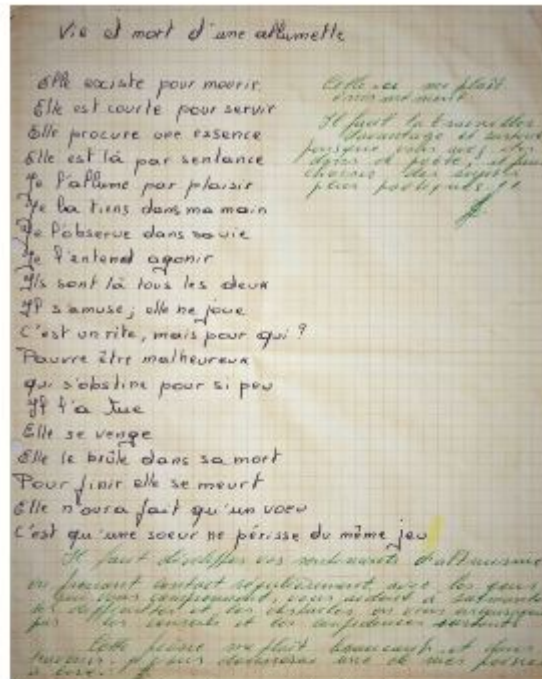 Vie et mort d'une allumette
Elle existe pour mourir
Elle est courte pour servir
Elle procure une essence
Elle est là par sentance
Je l'allume par plaisir
Je la tiens dans ma main
Je l'observe dans sa vie
Je l'entend agonir
Ils sont là tous les deux
Il s'amuse; elle ne joue
C'est un rite, mais pour qui ?
Pauvre être malheureux
qui s'obstine pour si peu
Il l'a tue
Elle se venge
Elle le brûle dans sa mort
Pour finir elle se meurt
Elle n'aura fait qu'un voeu
C'est qu'une soeur ne périsse du même jeu
me plaît
Il faut la travailler
davantage et surtout
puisque vous avez des
dons de poète, il faut
choisir des sujets
plus poétiques !!
Il faut développer vos sentiments d'altruisme
en prenant contact régulièrement avec les gens
qui vous comprennent, vous aident à surmonter
les difficultés et les obstacles
les conseils et les confidences
Cette poème me plaît beaucoup et
une de mes poèmes